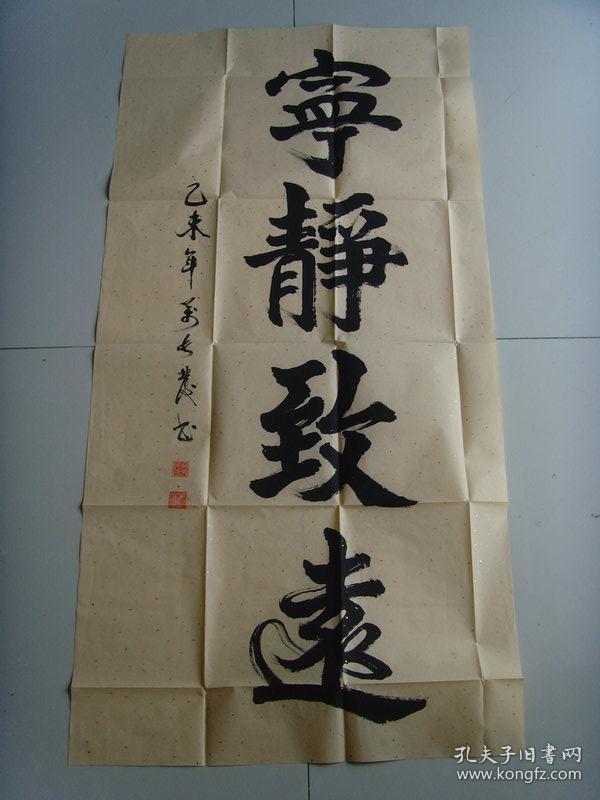 寧靜致遠
乙未年萬長發书
孔夫子旧書网
www.kongfz.com